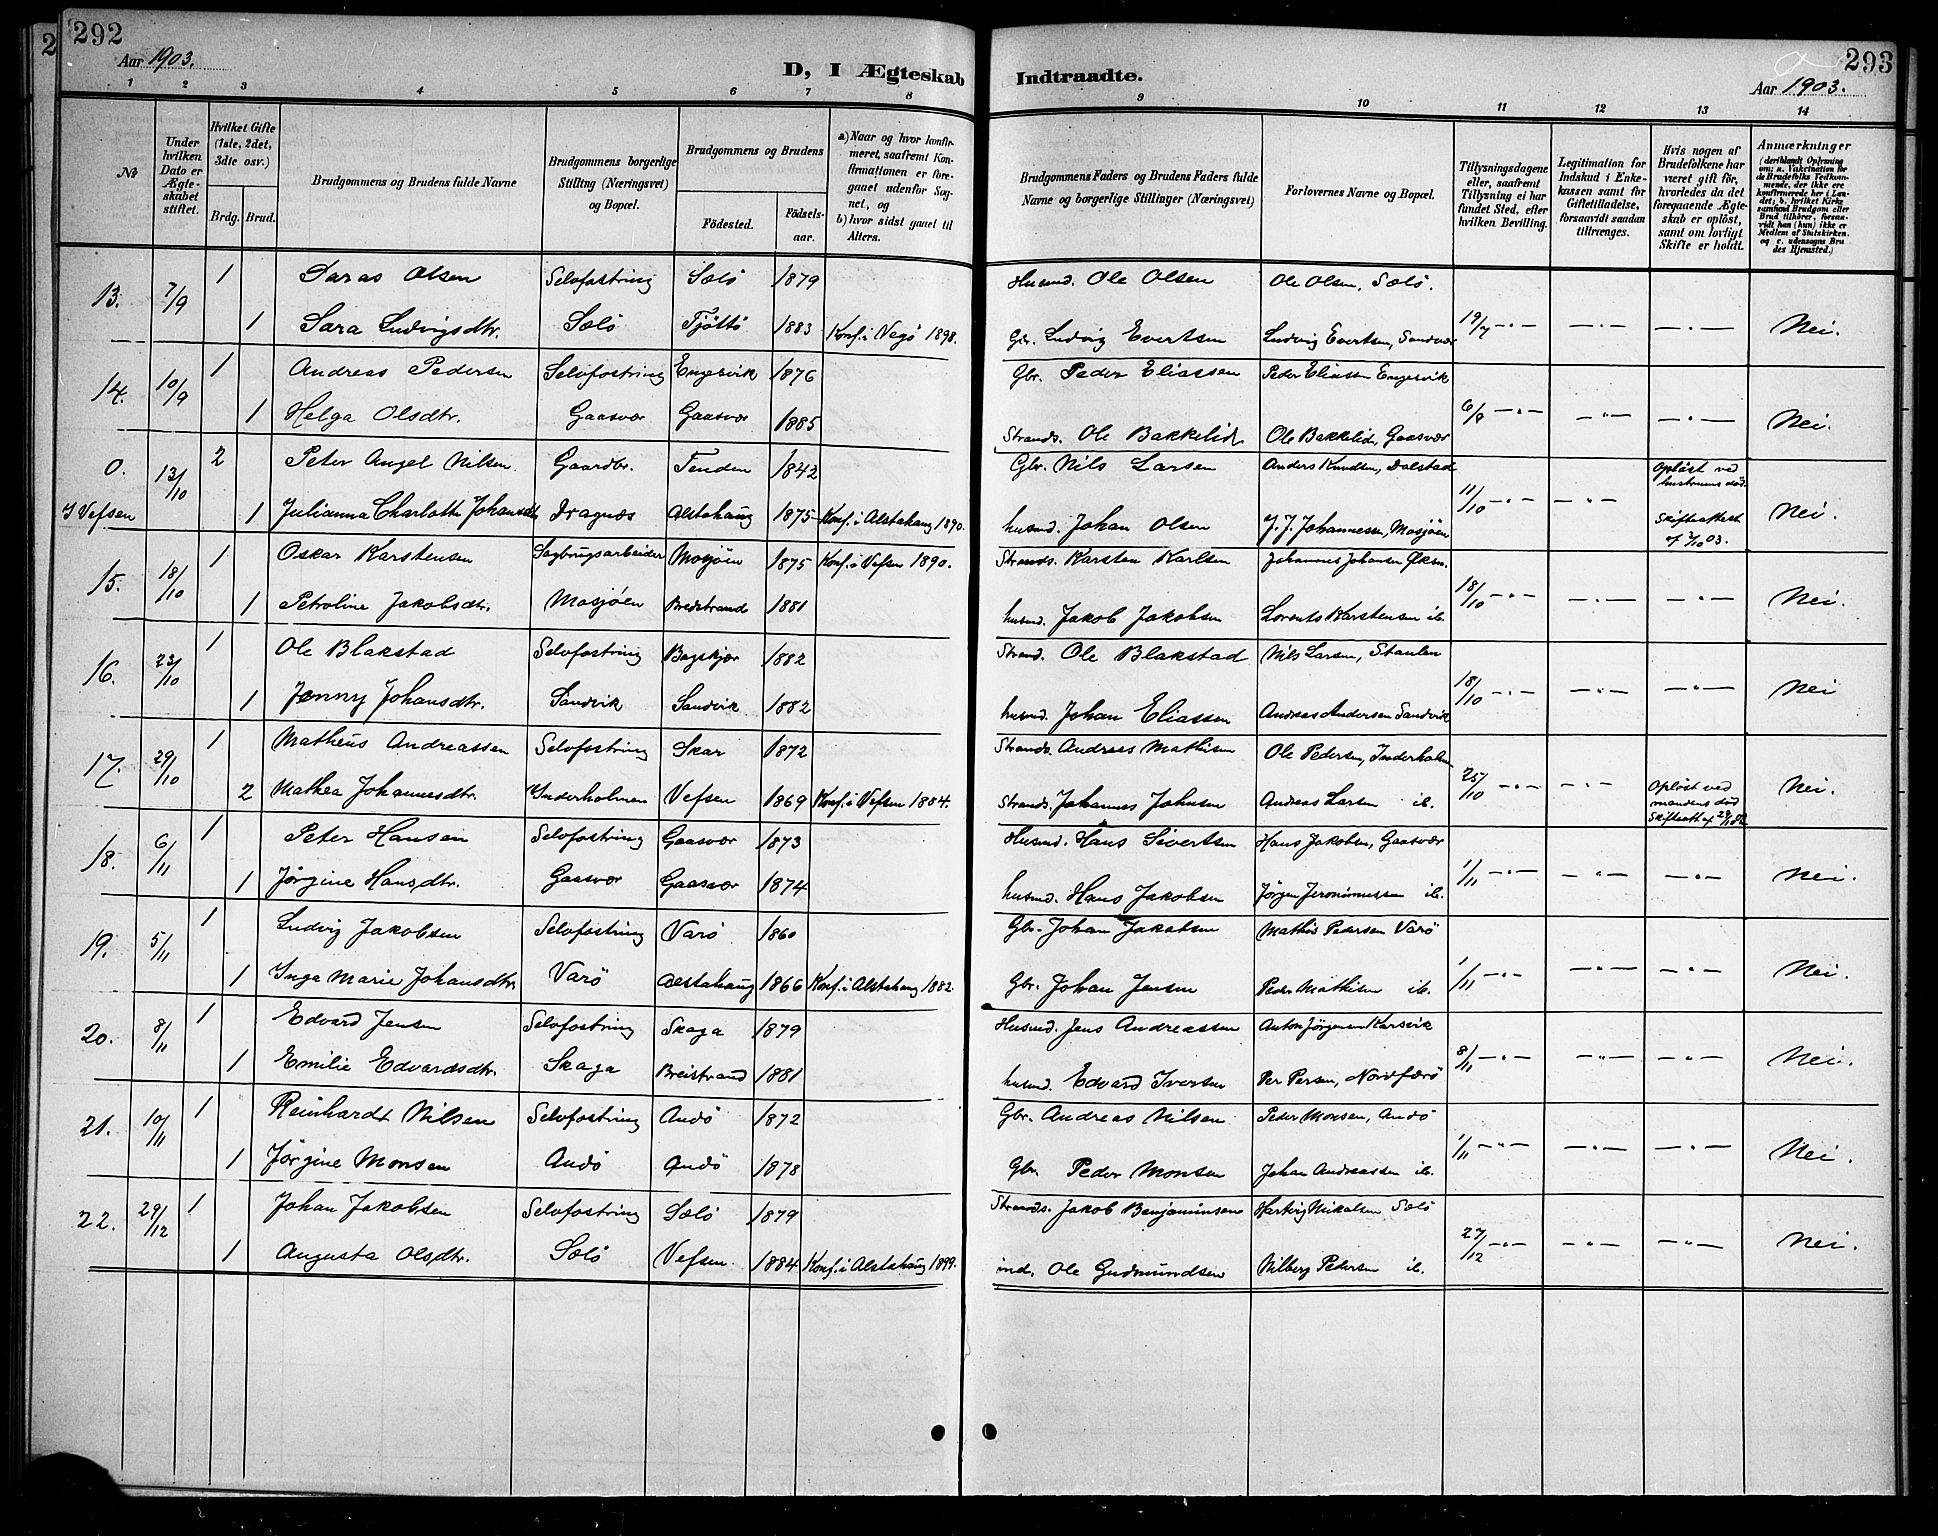 292
Aar 1903.
D, I Ægteskab Indtraadte.
293
Aar 1903.
1 2 3 4 5 6 7 8 9 10 11 12 13 14
No
Under hvilken Dato er Ægteskabet stiftet.
Hvilket Gifte (1ste, 2det, 3die osv.)
Brdg. Brud.
Brudgommens og Brudens fulde Navne
Brudgommens borgerlige Stilling (Næringsvei) og Bopæl.
Brudgommens og Brudens
Fødested. Fødselsaar.
a) Naar og hvor konfirmeret, saafremt Konfirmationen er foregaaet udenfor Sognet, og
b) hvor sidst gaaet til Alters.
Brudgommens Faders og Brudens Faders fulde Navne og borgerlige Stillinger (Næringsvei)
Forlovernes Navne og Bopæl.
Tillysningsdagene eller, saafremt Tillysning ei har fundet Sted, efter hvilken Bevilling.
Legitimation for Indskud i Enkekassen samt for Giftetilladelse, forsaavidt saadan tiltrænges.
Hvis nogen af Brudefolkene har været gift før, hvorledes da det foregaaende Ægteskab er opløst, samt om lovligt Skifte er holdt.
Anmærkninger
(deriblandt Oplysning om: a. Vakcination for de Brudefolks Vedkommende, der ikke ere konfirmerede her i Landet; b. hvilket Kirkesamfund Brudgom eller Brud tilhører, forsaavidt han (hun) ikke er Medlem af Statskirken. og c. udensogns Brudes Hjemsted.)
13. 7/9 1 Saras Olsen Selvfostring Sælø 1879 Husmd. Ole Olsen Ole Olsen, Sælø.
1 Sara Ludvigsdtr. Sælø Tjøttø 1883 Konf. i Vegø 1898. Gbr. Ludvig Evertsen Ludvig Evertsen, Sandvær 19/7 —„— —„— —„— Nei.
14. 10/9 1 Andreas Pedersen Selvfostring Engesvik 1876 Gbr. Peder Eliassen Peder Eliassen Engesvik
1 Helga Olsdtr. Gaasvær Gaasvær 1885 Strands. Ole Bakkelid Ole Bakkelid, Gaasvær 6/9 —„— —„— —„— Nei.
0. 13/10 2 Peter Angel Nilsen. Gaardbr. Tenden 1842 Gbr. Nils Larsen Anders Knudsen, Dolstad Opløst ved hustruens død.
I Vefsen 1 Julianna Charlotte Johansdtr Dragnæs Alstahaug 1875 Konf. i Alstahaug 1890. husmd. Johan Olsen J. J. Johannessen, Mosjøen 11/10 —„— —„— Skifteattest af 2/10 03. Nei.
15. 18/10 1 Oskar Karstensen Sagbrugsarbeider Mosjøen 1875 Konf. i Vefsen 1890. Strands. Karsten Karlsen Johannes Johansen Øksn.
1 Petroline Jakobsdtr. Mosjøen Bredstrand 1881 husmd. Jakob Jakobsen Lorents Karstensen ib. 18/10 —„— —„— —„— Nei.
16. 23/10 1 Ole Blakstad Selvfostring Bogskjær 1882 Strand. Ole Blakstad Nils Larsen, Staulen
1 Jenny Johansdtr. Sandvik Sandvik 1882 husmd. Johan Eliassen Andreas Andersen Sandvik 18/10 —„— —„— —„— Nei
17. 29/10 1 Mathæus Andreassen Selvfostring Skar 1872 Strands. Andreas Mathisen Ole Pedersen, Inderholm
2 Mathea Johannesdtr. Ynderholmen Vefsen 1869 Konf. i Vefsen 1884. Strands. Johannes Johnsen Andreas Larsen ib. 25/10 —„— —„— Opløst ved mandens død Skifteatt. af Nei.
18. 6/11 1 Peter Hansen Selvfostring Gaasvær 1873 Husmd. Hans Sivertsen Hans Jakobsen, Gaasvær
1 Jørgine Hansdtr. Gaasvær Gaasvær 1874 husmd. Hans Jakobsen Jørgen Jeronimussen ib. 1/11 —„— —„— —„— Nei.
19. 5/11 1 Ludvig Jakobsen Selvfostring Varø 1860 Gbr. Johan Jakobsen Mathis Pedersen Varø
1 Inga Marie Johansdtr. Varø Alstahaug 1866 Konf. i Alstahaug 1882. Gbr. Johan Jensen Peder Mathisen ib. 1/11 —„— —„— —„— Nei.
20. 8/11 1 Edvard Jensen Selvfostring Skaga 1879 Husmd. Jens Andreassen Anton Jørgensen Karsvik
1 Emilie Edvardsdtr. Skaga Breistrand 1881 husmd. Edvard Iversen Per Persen, Nordfærø 8/11 —„— —„— —„— Nei.
21. 10/11 1 Reinhardt Nilsen Selvfostring Andø 1872 Gbr. Andreas Nilsen Peder Monsen, Andø
1 Jørgine Monsen Andø Andø 1878 Gbr. Peder Monsen Johan Andreassen ib. 1/11 —„— —„— —„— Nei.
22. 29/12 1 Johan Jakobsen Selvfostring Sælø 1879 Strands. Jakob Benjaminsen Hartvig Nikolsen Sælø
1 Augusta Olsdtr. Sælø Vefsen. 1884 Konf. i Alstahaug 1899. ind. Ole Gudmundsen Vilberg Pedersen ib. 27/12 —„— —„— —„— Nei.